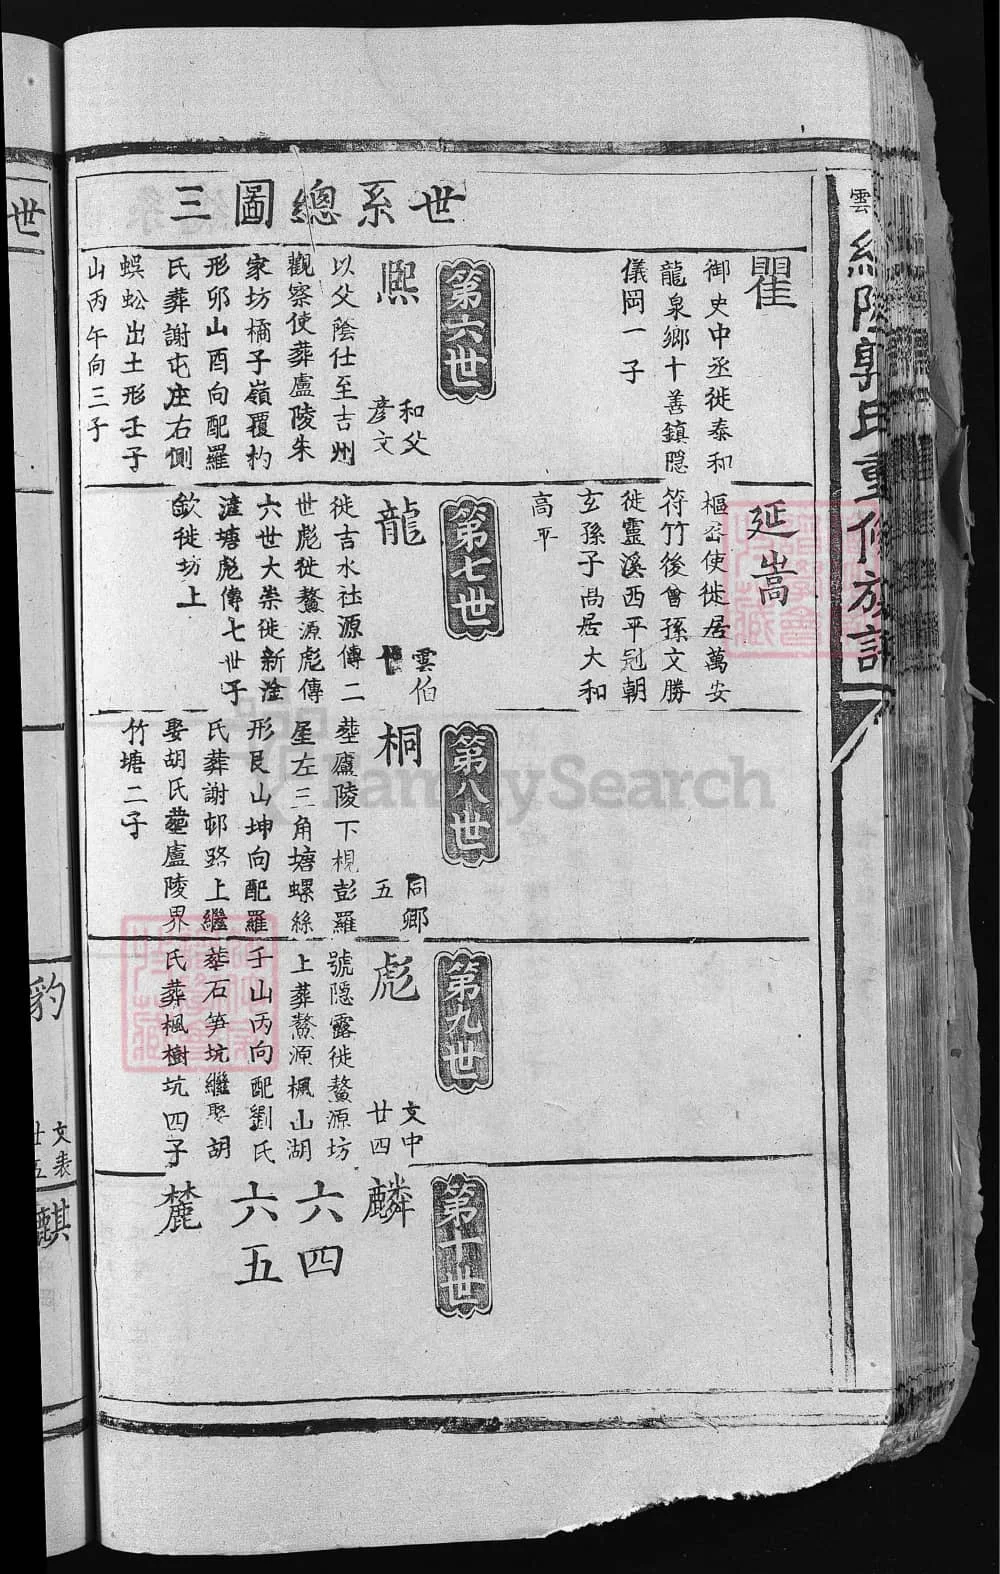 世系總圖三
瞿
御史中丞徙泰和
龍泉鄉十善鎮隱
儀岡一子
延嵩
樞密使徙居萬安
符竹後曾孫文勝
徙靈溪西平剋朝
玄孫子卨居大和
高平
第六世
熈
和父
彥文
以父蔭仕至吉州
觀察使葬盧陵朱
家坊橘子嶺覆杓
形卯山酉向配羅
氏葬謝屯庄右側
蜈蚣出土形壬子
山丙午向三子
第七世
龍
雲伯
十
徙吉水社源傳二
世彪徙鰲源彪傳
六世大崇徙新淦
滻塘彪傳七世子
欽徙坊上
第八世
桐
同鄉
五
塟廬陵下梘彭羅
屋左三角塘螺絲
形艮山坤向配羅
氏葬謝邨路上繼
娶胡氏塟盧陵界
竹塘二子
第九世
彪
文中
廿四
號隱露徙鰲源坊
上葬鰲源楓山湖
壬山丙向配劉氏
葬石笋坑繼娶胡
氏葬楓樹坑四子
第十世
麟
六四
六五
麓
雲
郭氏重修族譜
世
豹
文表
廿五
麒
FamilySearch